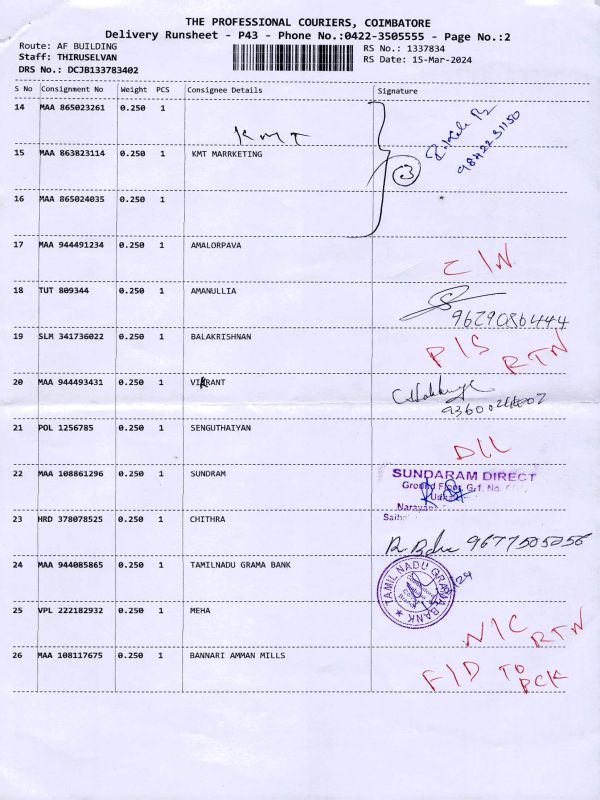 THE PROFESSIONAL COURIERS, COIMBATORE
Delivery Runsheet - P43 - Phone No.:0422-3505555 - Page No.:2
Route: AF BUILDING
RS No.: 1337834
Staff: THIRUSELVAN
RS Date: 15-Mar-2024
DRS No.: DCJB133783402
S No Consignment No Weight PCS Consignee Details Signature
14 MAA 865023261 0.250 1
KMT
15 MAA 863823114 0.250 1 KMT MARRKETING
3
16 MAA 865024035 0.250 1
17 MAA 944491234 0.250 1 AMALORPAVA
18 TUT 809344 0.250 1 AMANULLIA
9629086444
19 SLM 341736022 0.250 1 BALAKRISHNAN
P/S RTN
20 MAA 944493431 0.250 1 VIKRANT
21 POL 1256785 0.250 1 SENGUTHAIYAN
22 MAA 108861296 0.250 1 SUNDRAM
SUNDARAM DIRECT
23 HRD 378078525 0.250 1 CHITHRA
9677505056
24 MAA 944085865 0.250 1 TAMILNADU GRAMA BANK
TAMIL NADU GRAMA BANK
25 VPL 222182932 0.250 1 MEHA
N/C RTN
26 MAA 108117675 0.250 1 BANNARI AMMAN MILLS
F/D TO PCK